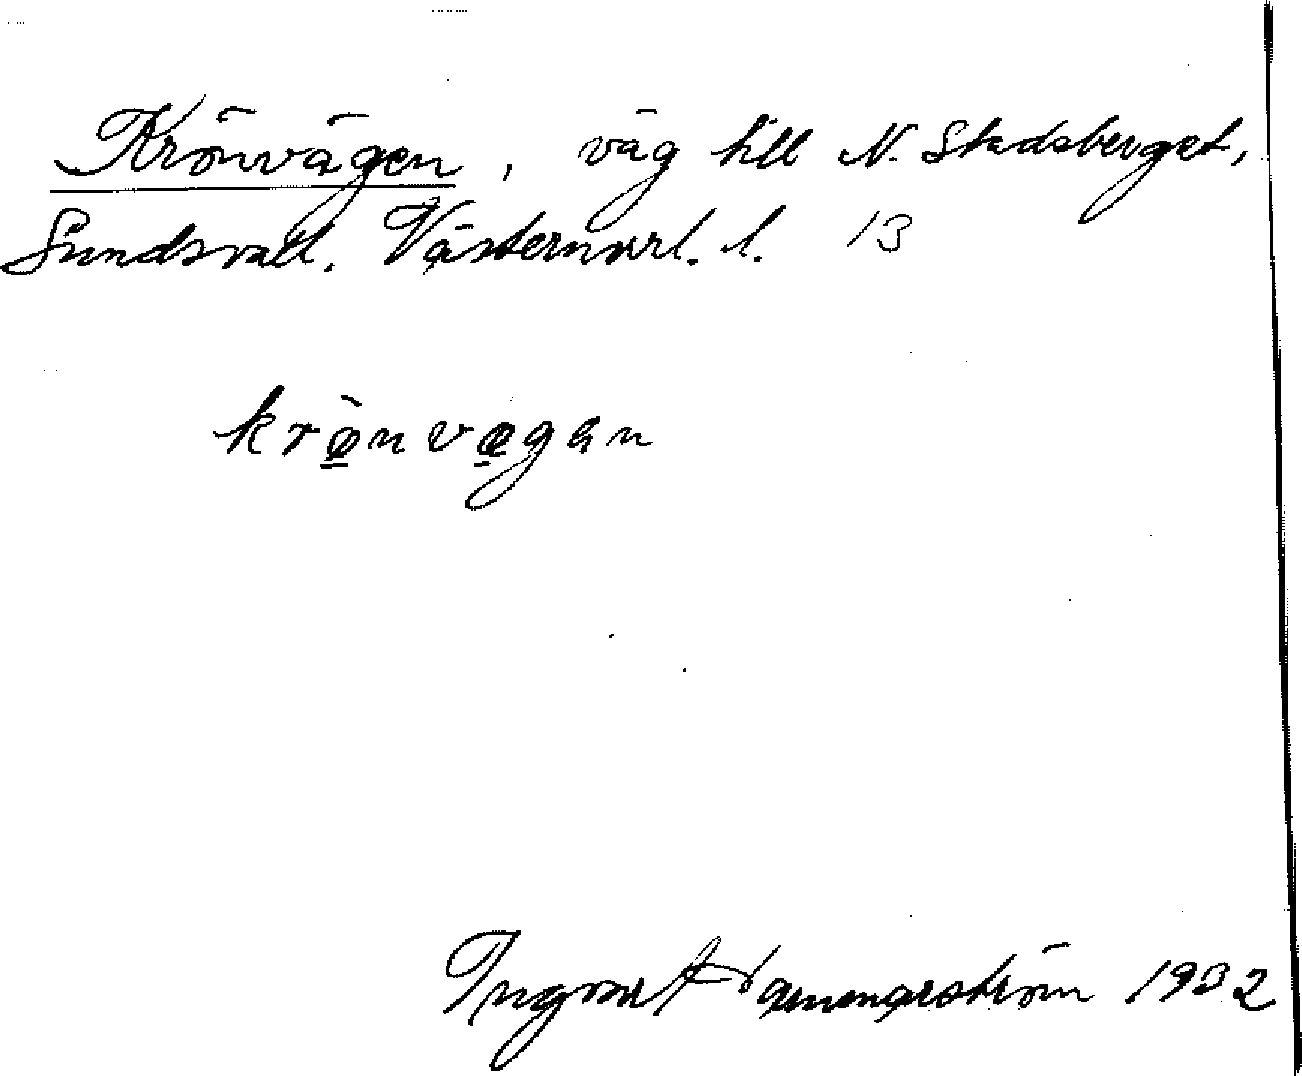 Krönvägen, väg till N. Stadsberget,
Sundsvall. Västernorrl. l. 13
krø̀nvægen
Ingvar Hammarström 1932